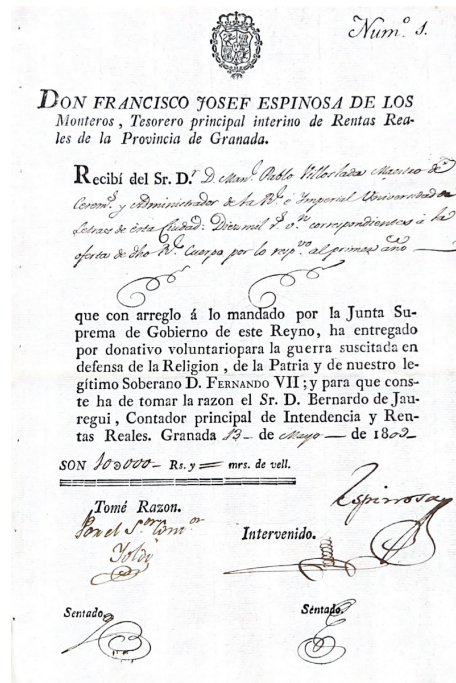 Numº. 1.
DON FRANCISCO JOSEF ESPINOSA DE LOS
Monteros, Tesorero principal interino de Rentas Rea-
les de la Provincia de Granada.
Recibí del Sr. D.r D. Man.l Pablo Villoslada Maestro de
Cerem.s y Administrador de la R.l é Imperial Universidad de
Letras de ésta Ciudad: Diez mil r.s v.n correspondientes á la
oferta de dho R.l Cuerpo por lo resp.vo al primer año
que con arreglo á lo mandado por la Junta Su-
prema de Gobierno de este Reyno, ha entregado
por donativo voluntariopara la guerra suscitada en
defensa de la Religion, de la Patria y de nuestro le-
gítimo Soberano D. FERNANDO VII; y para que cons-
te ha de tomar la razon el Sr. D. Bernardo de Jau-
regui, Contador principal de Intendencia y Ren-
tas Reales. Granada 13 de Mayo de 1809
SON 10000 Rs. y = mrs. de vell.
Espinosa
Tomé Razon.
Por el S.or
Intervenido.
Sentado.
Sentado.